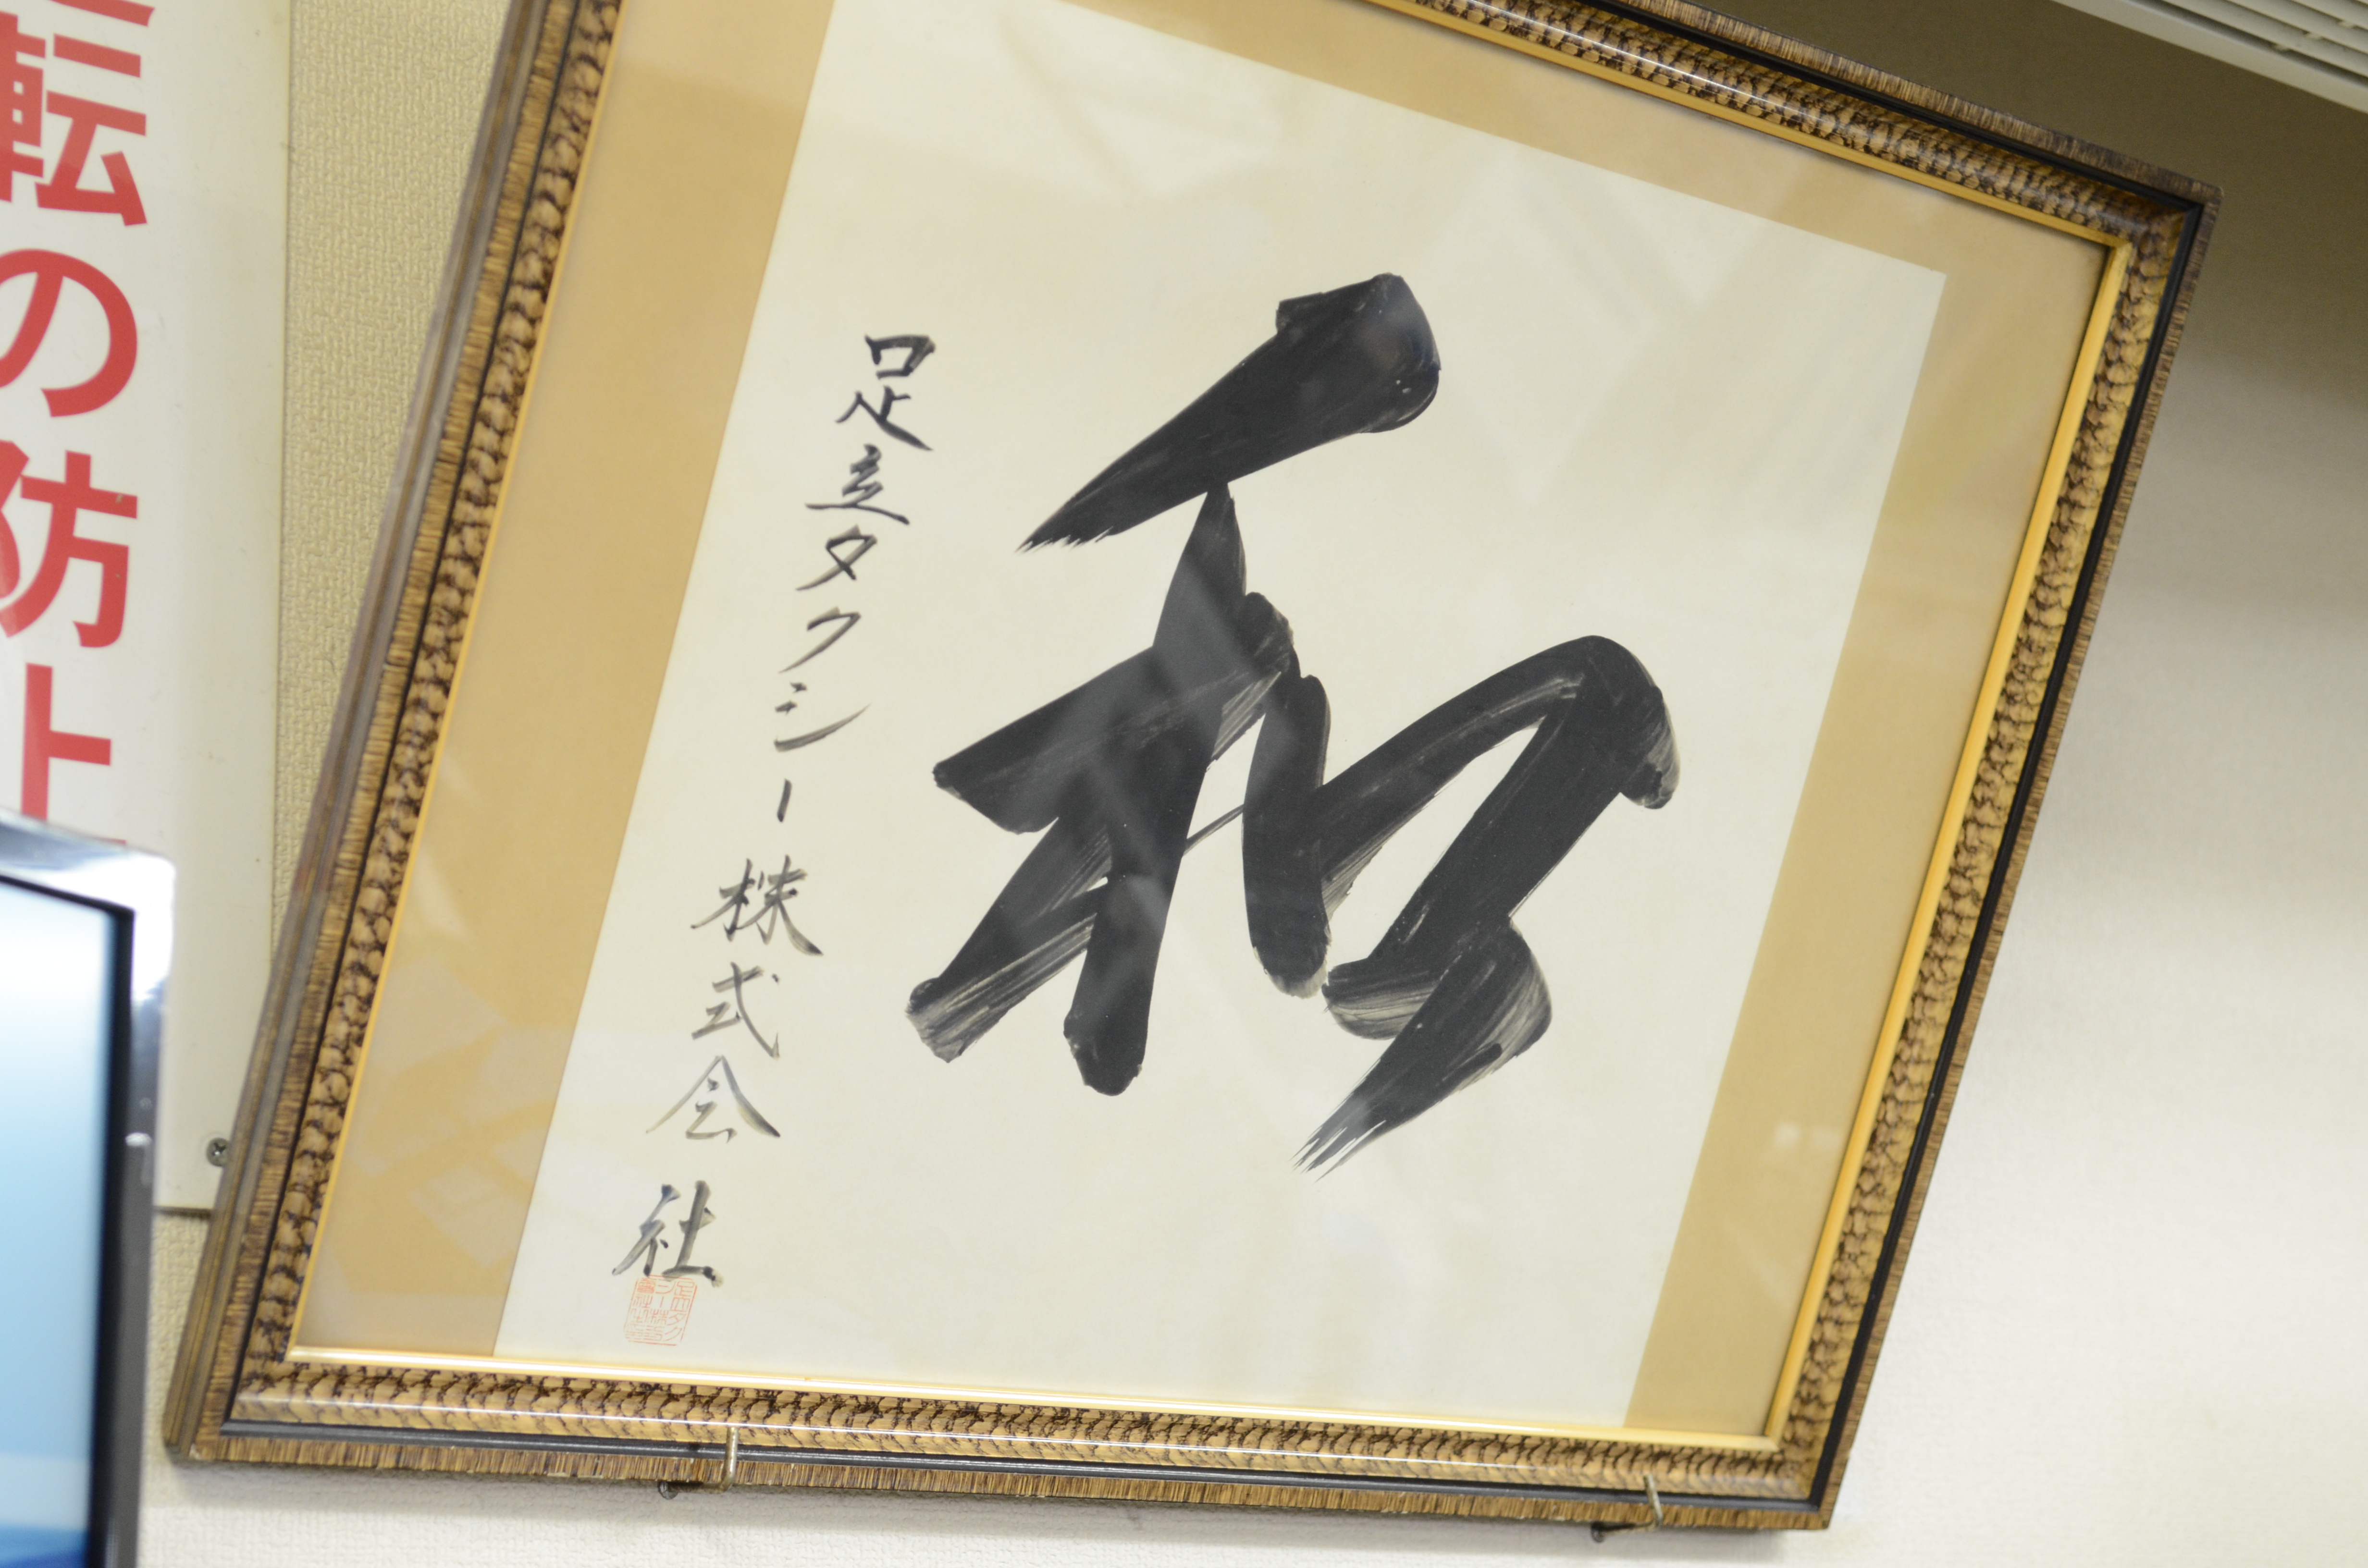 和
足立タクシー株式会社
転の防止